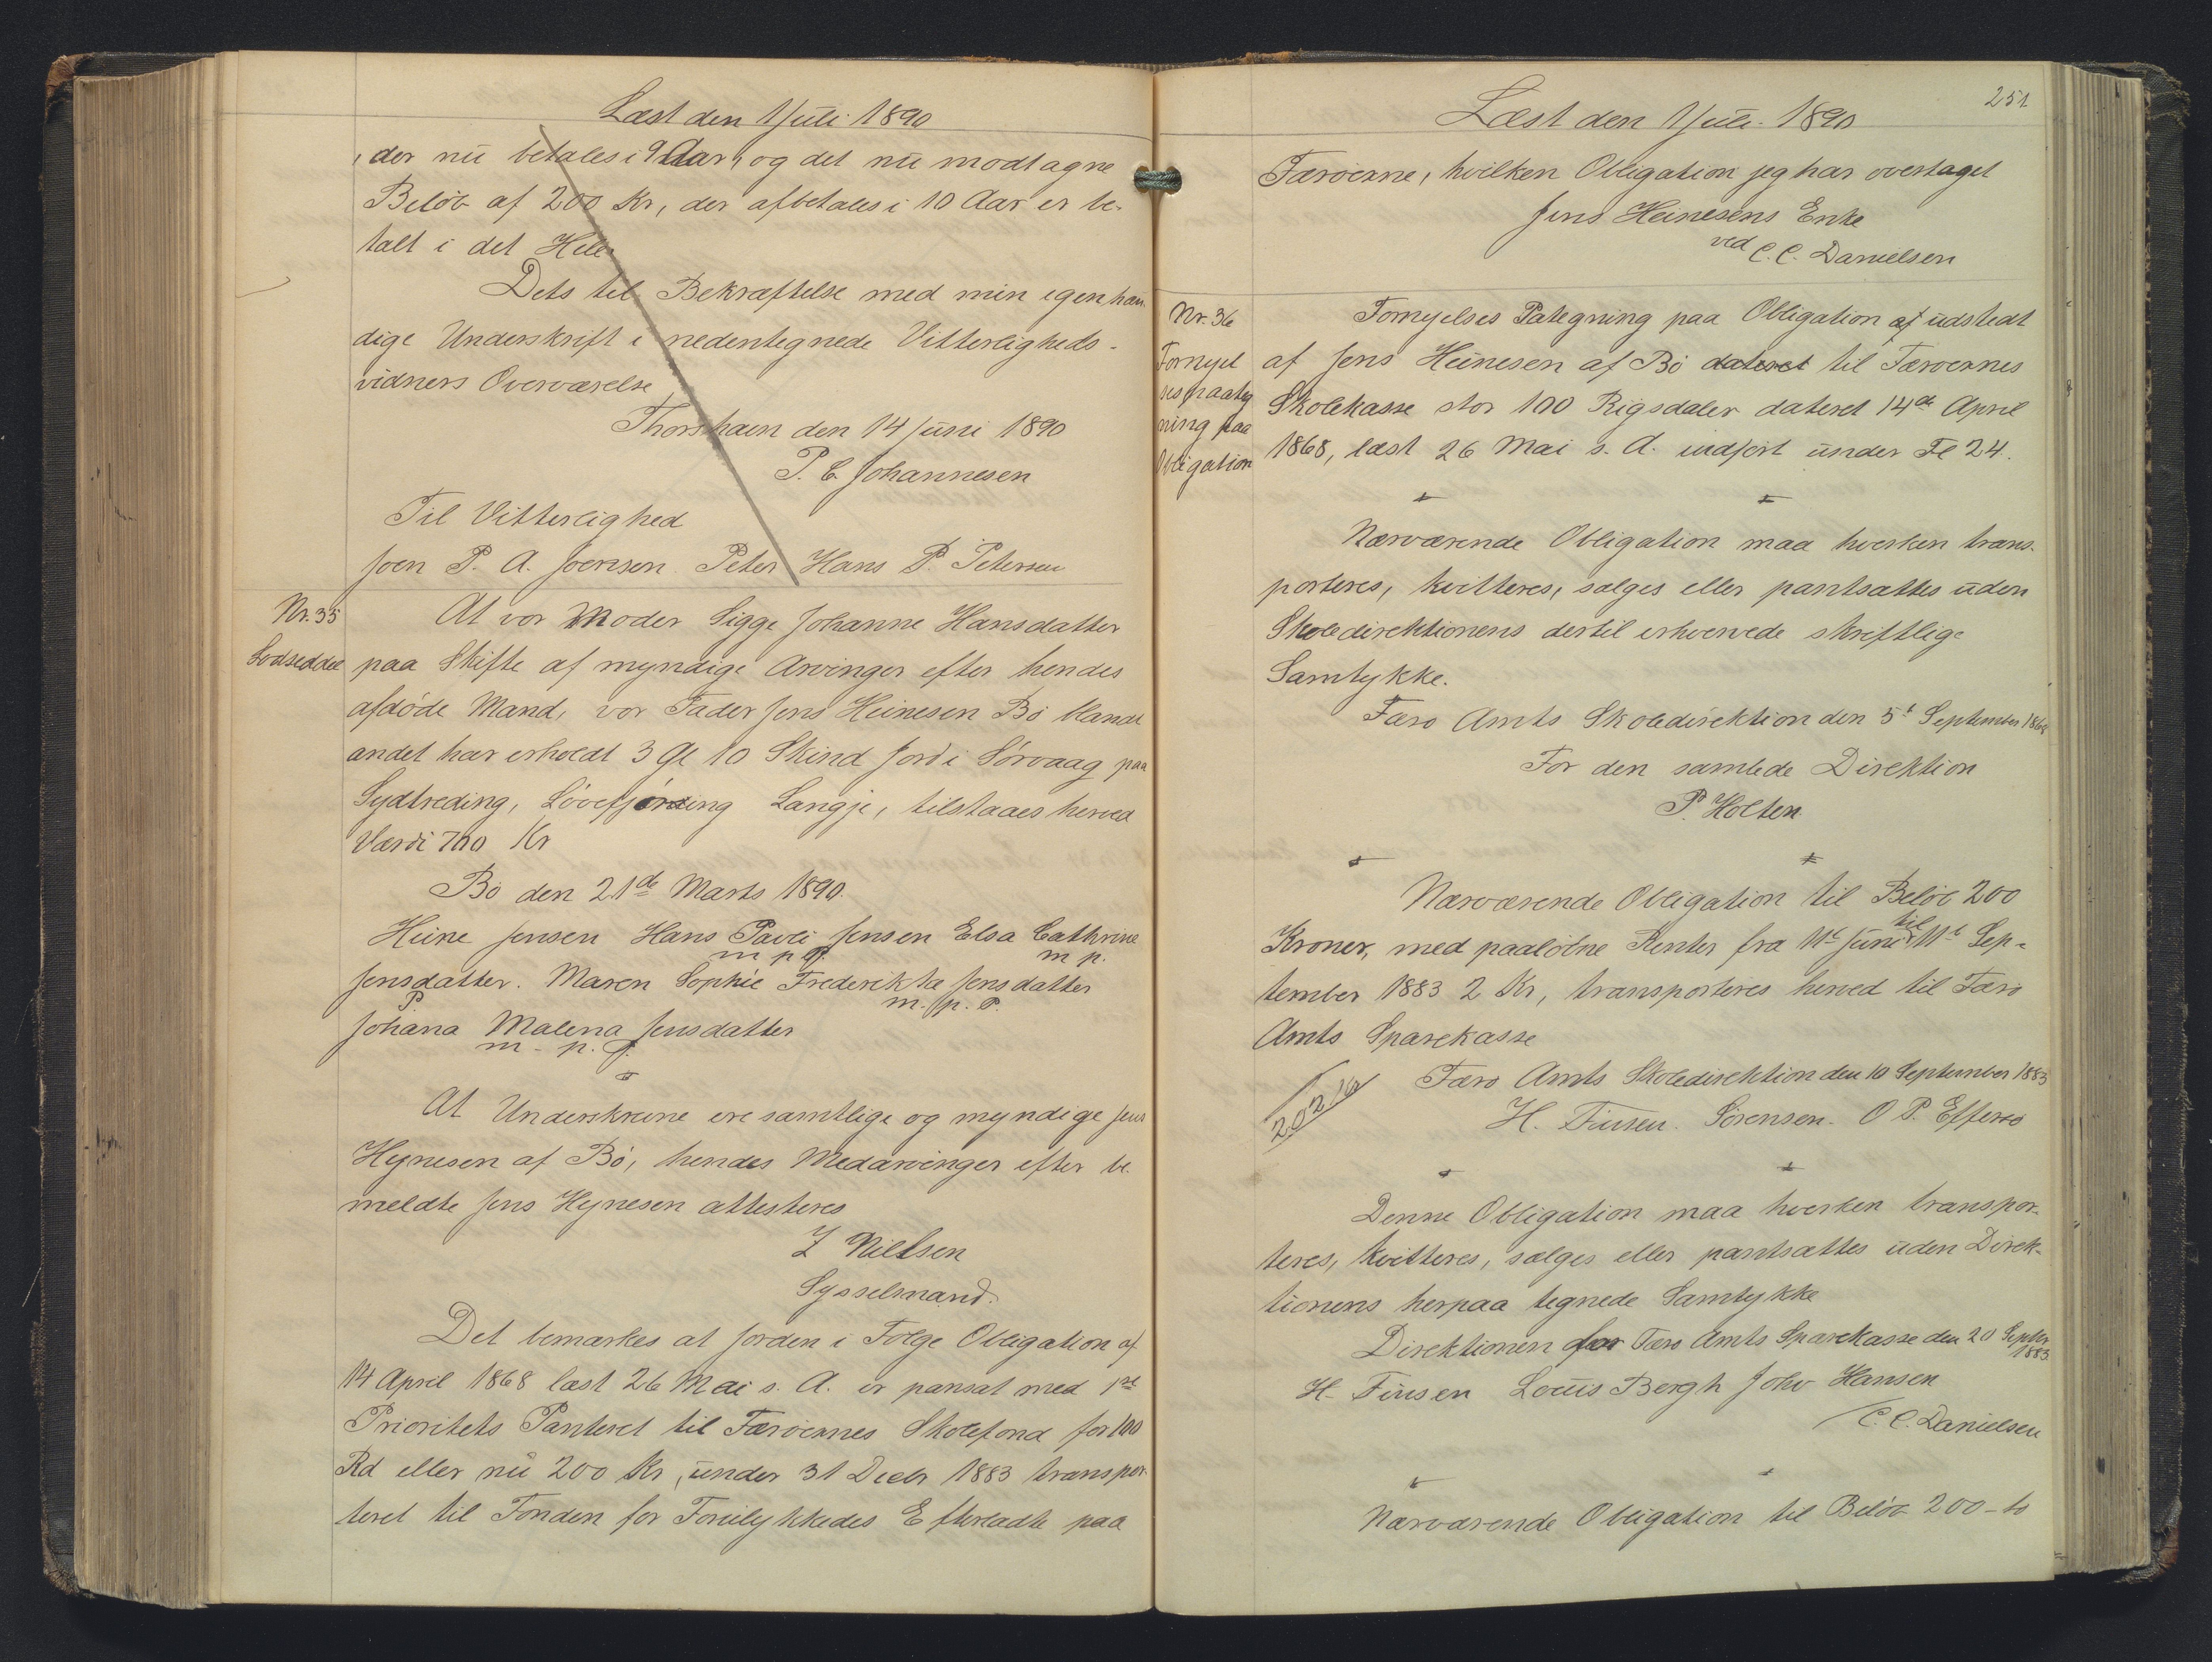 Læst den 1 Juli 1890
, der nu betales i 9 Aar, og det nu modtagne
Beløb af 200 Kr, der afbetales i 10 Aar er be-
talt i det Hele
Dets til Bekræftelse med min egenhæn-
dige Underskrift i nedentegnede Vitterligheds-
vidners Overværelse
Thorshavn den 14 Juni 1890
P. C. Johannesen
Til Vitterlighed
Joen P. A. Joensen Peter Hans P. Petersen
Nr. 35
Lodseddel
At vor Moder Sigge Johanne Hansdatter
paa Skifte af myndige Arvinger efter hendes
afdøde Mand, vor Fader Jens Heinesen Bø blandt
andet har erholdt 3 Gl 10 Skind Jord i Sørvaag paa
Sydtreding, Løvefjørding Langje, tilstaaes herved
Værdi 700 Kr
Bø den 21de Marts 1890.
Heine Jensen Hans Pavli Jensen Elsa Cathrine
m p P. m p.
Jensdatter. Maren Sophie Frederikka Jensdatter
P. m. p. P.
Johana Malena Jensdatter
m. p. P.
At Underskrevne ere samtlige og myndige Jens
Hejnesen af Bø, hendes Medarvinger efter be-
meldte Jens Hejnesen attesteres
Z Nielsen
Sysselmand.
Det bemærkes at Jorden i Følge Obligation af
14 April 1868 læst 26 Mai s. A. er pansat med 1ste
Prioritets Panteret til Færøernes Skolefond for 100
Rd eller nu 200 Kr, under 31 Decbr 1883 transpor-
teret til Fonden for Forulykkedes Efterladte paa
251
Læst den 1 Juli 1890
Færøerne, hvilken Obligation jeg har overtaget
Jens Heinesens Enke
ved C. C. Danielsen
Nr. 36
Fornyel
sespaateg
ning paa
Obligation
Fornyelses Pategning paa Obligation af udstedt
af Jens Heinesen af Bø dateret til Færøernes
Skolekasse stor 100 Rigsdaler dateret 14de April
1868, læst 26 Mai s. A. indført under Fl 24.
Nærværende Obligation maa hverken trans-
porteres, kvitteres, sælges eller pantsættes uden
Skoledirektionens dertil erhvervede skriftlige
Samtykke.
Færø Amts Skoledirektion den 5t September 1868
For den samlede Direktion
P. Holten
Nærværende Obligation til Beløb 200
Kroner, med paaløbne Renter fra 11t Juni til 11t Sep-
tember 1883 2 Kr, transporteres herved til Færø
Amts Sparekasse
202 16
Færø Amts Skoledirektion den 10 September 1883
H. Finsen. Sørensen. O P. Effersø
Denne Obligation maa hverken transpor-
teres, kvitteres, sælges eller pantsættes uden Direk-
tionens herpaa tegnede Samtykke
Direktionen for Færø Amts Sparekasse den 20 Septbr
1883
H. Finsen Louis Bergh Johs Hansen
/ C. C. Danielsen
Nærværende Obligation til Beløb 200 - to